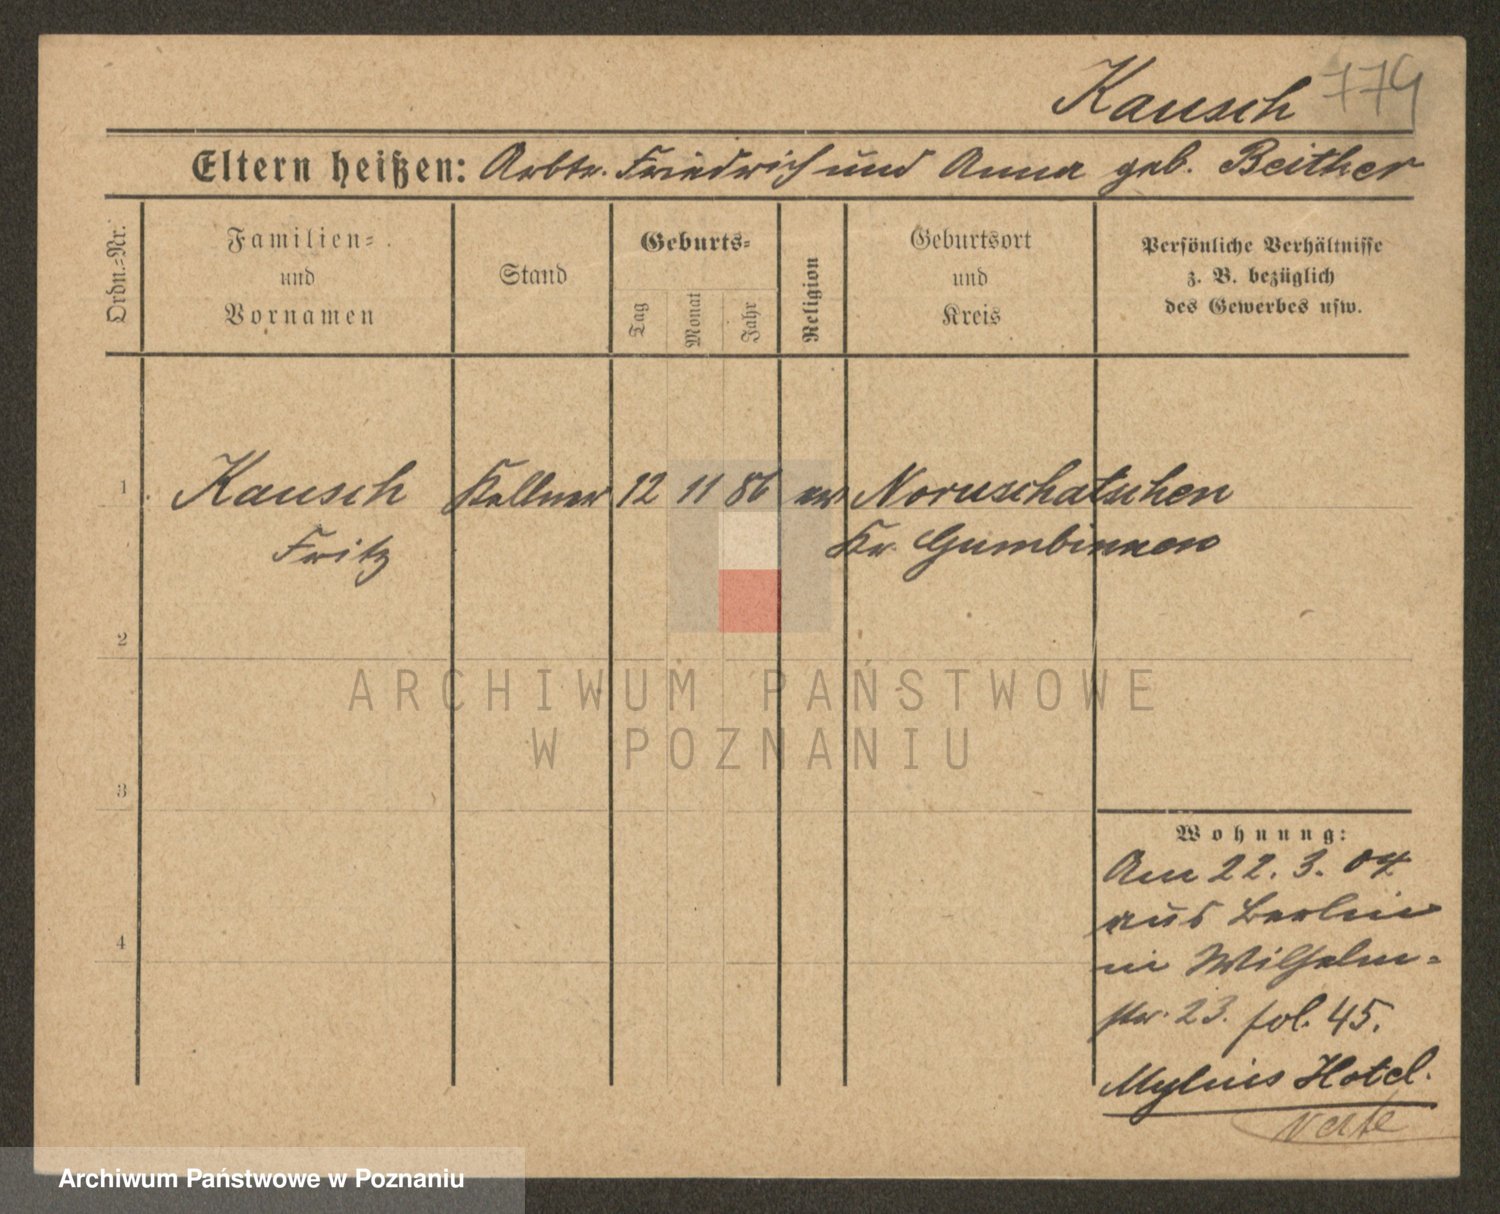 Kausch 779
Eltern heißen: Arbtr. Friedrich und Anna geb. Beither
Ordn.-Nr.
Familien-
und
Vornamen
Stand
Geburts-
Tag
Monat
Jahr
Religion
Geburtsort
und
Kreis
Persönliche Verhältnisse
z. B. bezüglich
des Gewerbes usw.
1 Kausch Kellner 12 11 86 ev Noruschatschen
Fritz Kr. Gumbinnen
2
3
4
ARCHIWUM PAŃSTWOWE
W POZNANIU
Wohnung:
Am 22. 3. 04
aus Berlin
in Wilhelm-
str. 23. fol. 45.
Mylius Hotel.
verte
Archiwum Państwowe w Poznaniu